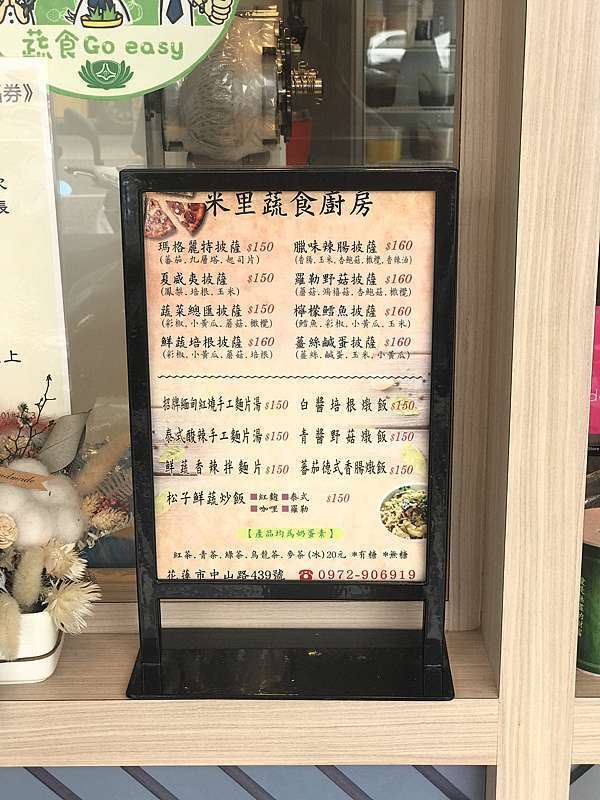 蔬食Go easy
券》
長
上
米里蔬食廚房
瑪格麗特披薩 $150
(蕃茄.九層塔.起司片)
夏威夷披薩 $150
(鳳梨.培根.玉米)
蔬菜總匯披薩 $150
(彩椒.小黃瓜.蘑菇.橄欖)
鮮蔬培根披薩 $160
(彩椒.小黃瓜.蘑菇.培根)
臘味辣腸披薩 $160
(香腸.玉米.杏鮑菇.橄欖.香辣油)
羅勒野菇披薩 $160
(蘑菇.鴻禧菇.杏鮑菇.橄欖)
檸檬鱈魚披薩 $160
(鱈魚.彩椒.小黃瓜.玉米)
薑絲鹹蛋披薩 $160
(薑絲.鹹蛋.玉米.小黃瓜)
招牌緬甸紅燒手工麵片湯 $150
泰式酸辣手工麵片湯 $150
鮮蔬香辣拌麵片 $150
白醬培根燉飯 $150
青醬野菇燉飯 $150
蕃茄德式香腸燉飯 $150
松子鮮蔬炒飯 ■紅麴 ■泰式 $150
■咖哩 ■羅勒
【產品均為奶蛋素】
紅茶.青茶.綠茶.烏龍茶.麥茶(冰)20元 *有糖 *無糖
花蓮市中山路439號 ☎0972-906919